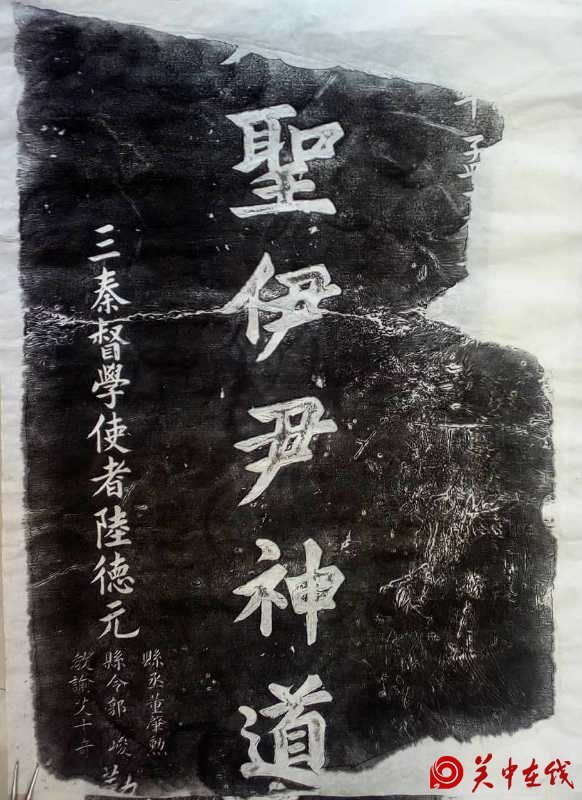 子
聖伊尹神道
三秦督學使者陸德元
縣丞董肇勲
縣令郭峻
教諭
关中在线